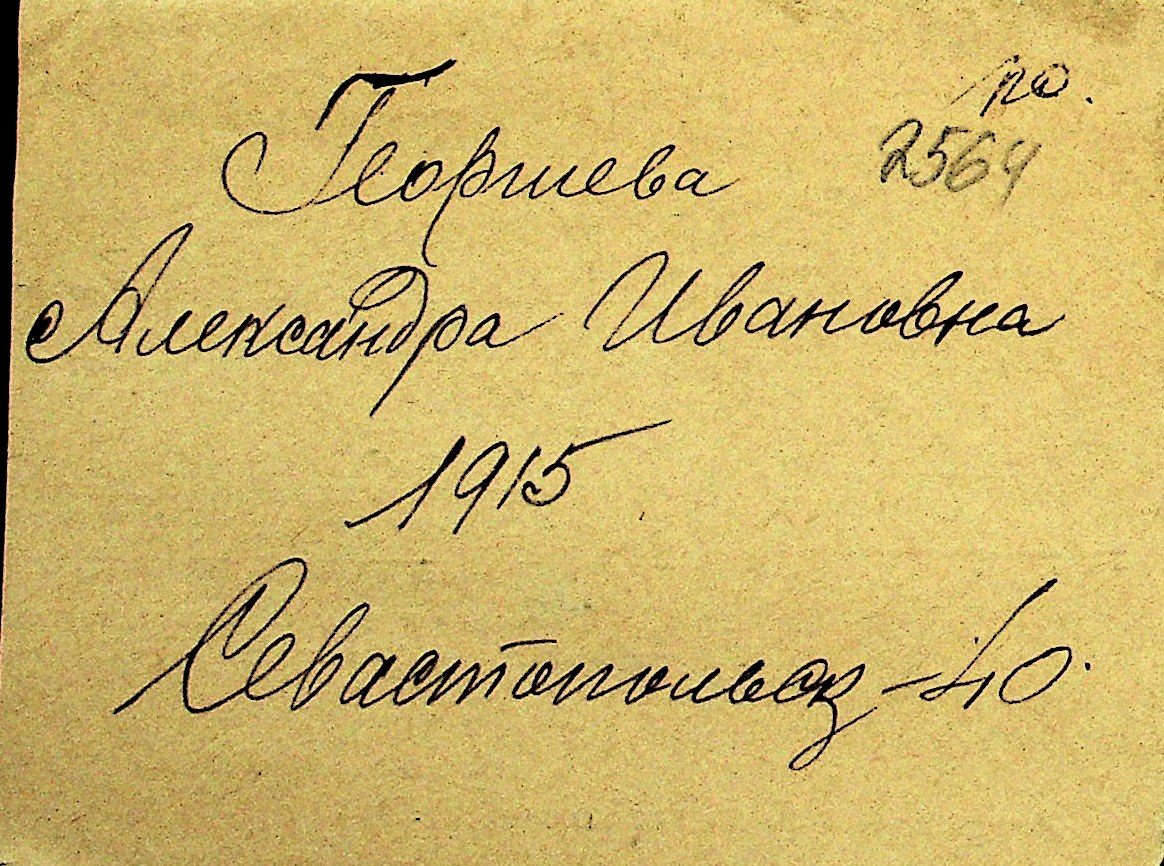 2564
Георгиева
Александра Ивановна
1915
Севастопольск - 40.